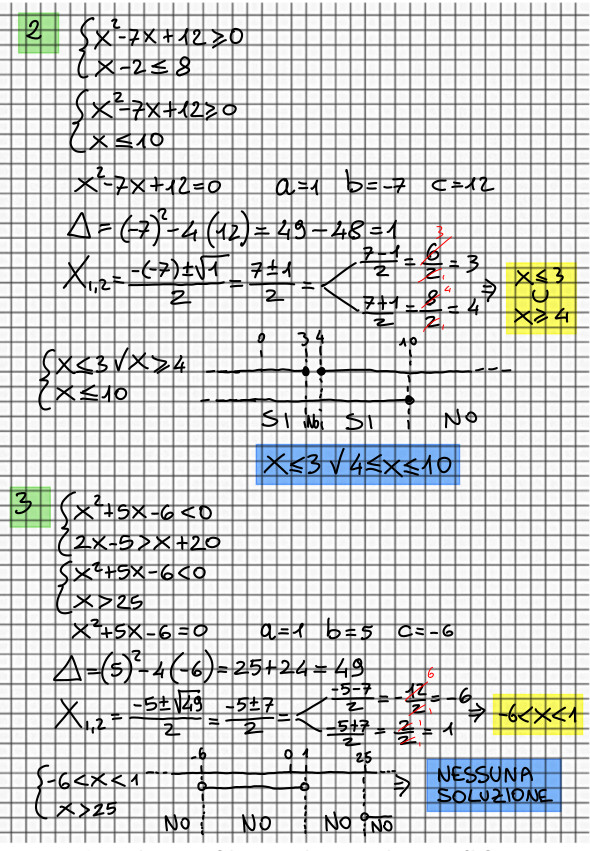 2
{ x²-7x+12≥0
x-2≤8
{ x²-7x+12≥0
x≤10
x²-7x+12=0 a=1 b=-7 c=12
Δ=(-7)²-4(12)=49-48=1
X₁,₂= -(-7)±√1 / 2 = 7±1 / 2 =
7-1 / 2 = 6 / 2 = 3
7+1 / 2 = 8 / 2 = 4
⇒ x≤3
∪
x≥4
0 3 4 10
{ x≤3 √ x≥4
x≤10
SI NO SI NO
x≤3 √ 4≤x≤10
3
{ x²+5x-6<0
2x-5>x+20
{ x²+5x-6<0
x>25
x²+5x-6=0 a=1 b=5 c=-6
Δ=(5)²-4(-6)=25+24=49
X₁,₂= -5±√49 / 2 = -5±7 / 2 =
-5-7 / 2 = -12 / 2 = -6
-5+7 / 2 = 2 / 2 = 1
⇒ -6<x<1
-6 0 1 25
{ -6<x<1
x>25
NO NO NO NO
⇒ NESSUNA
SOLUZIONE